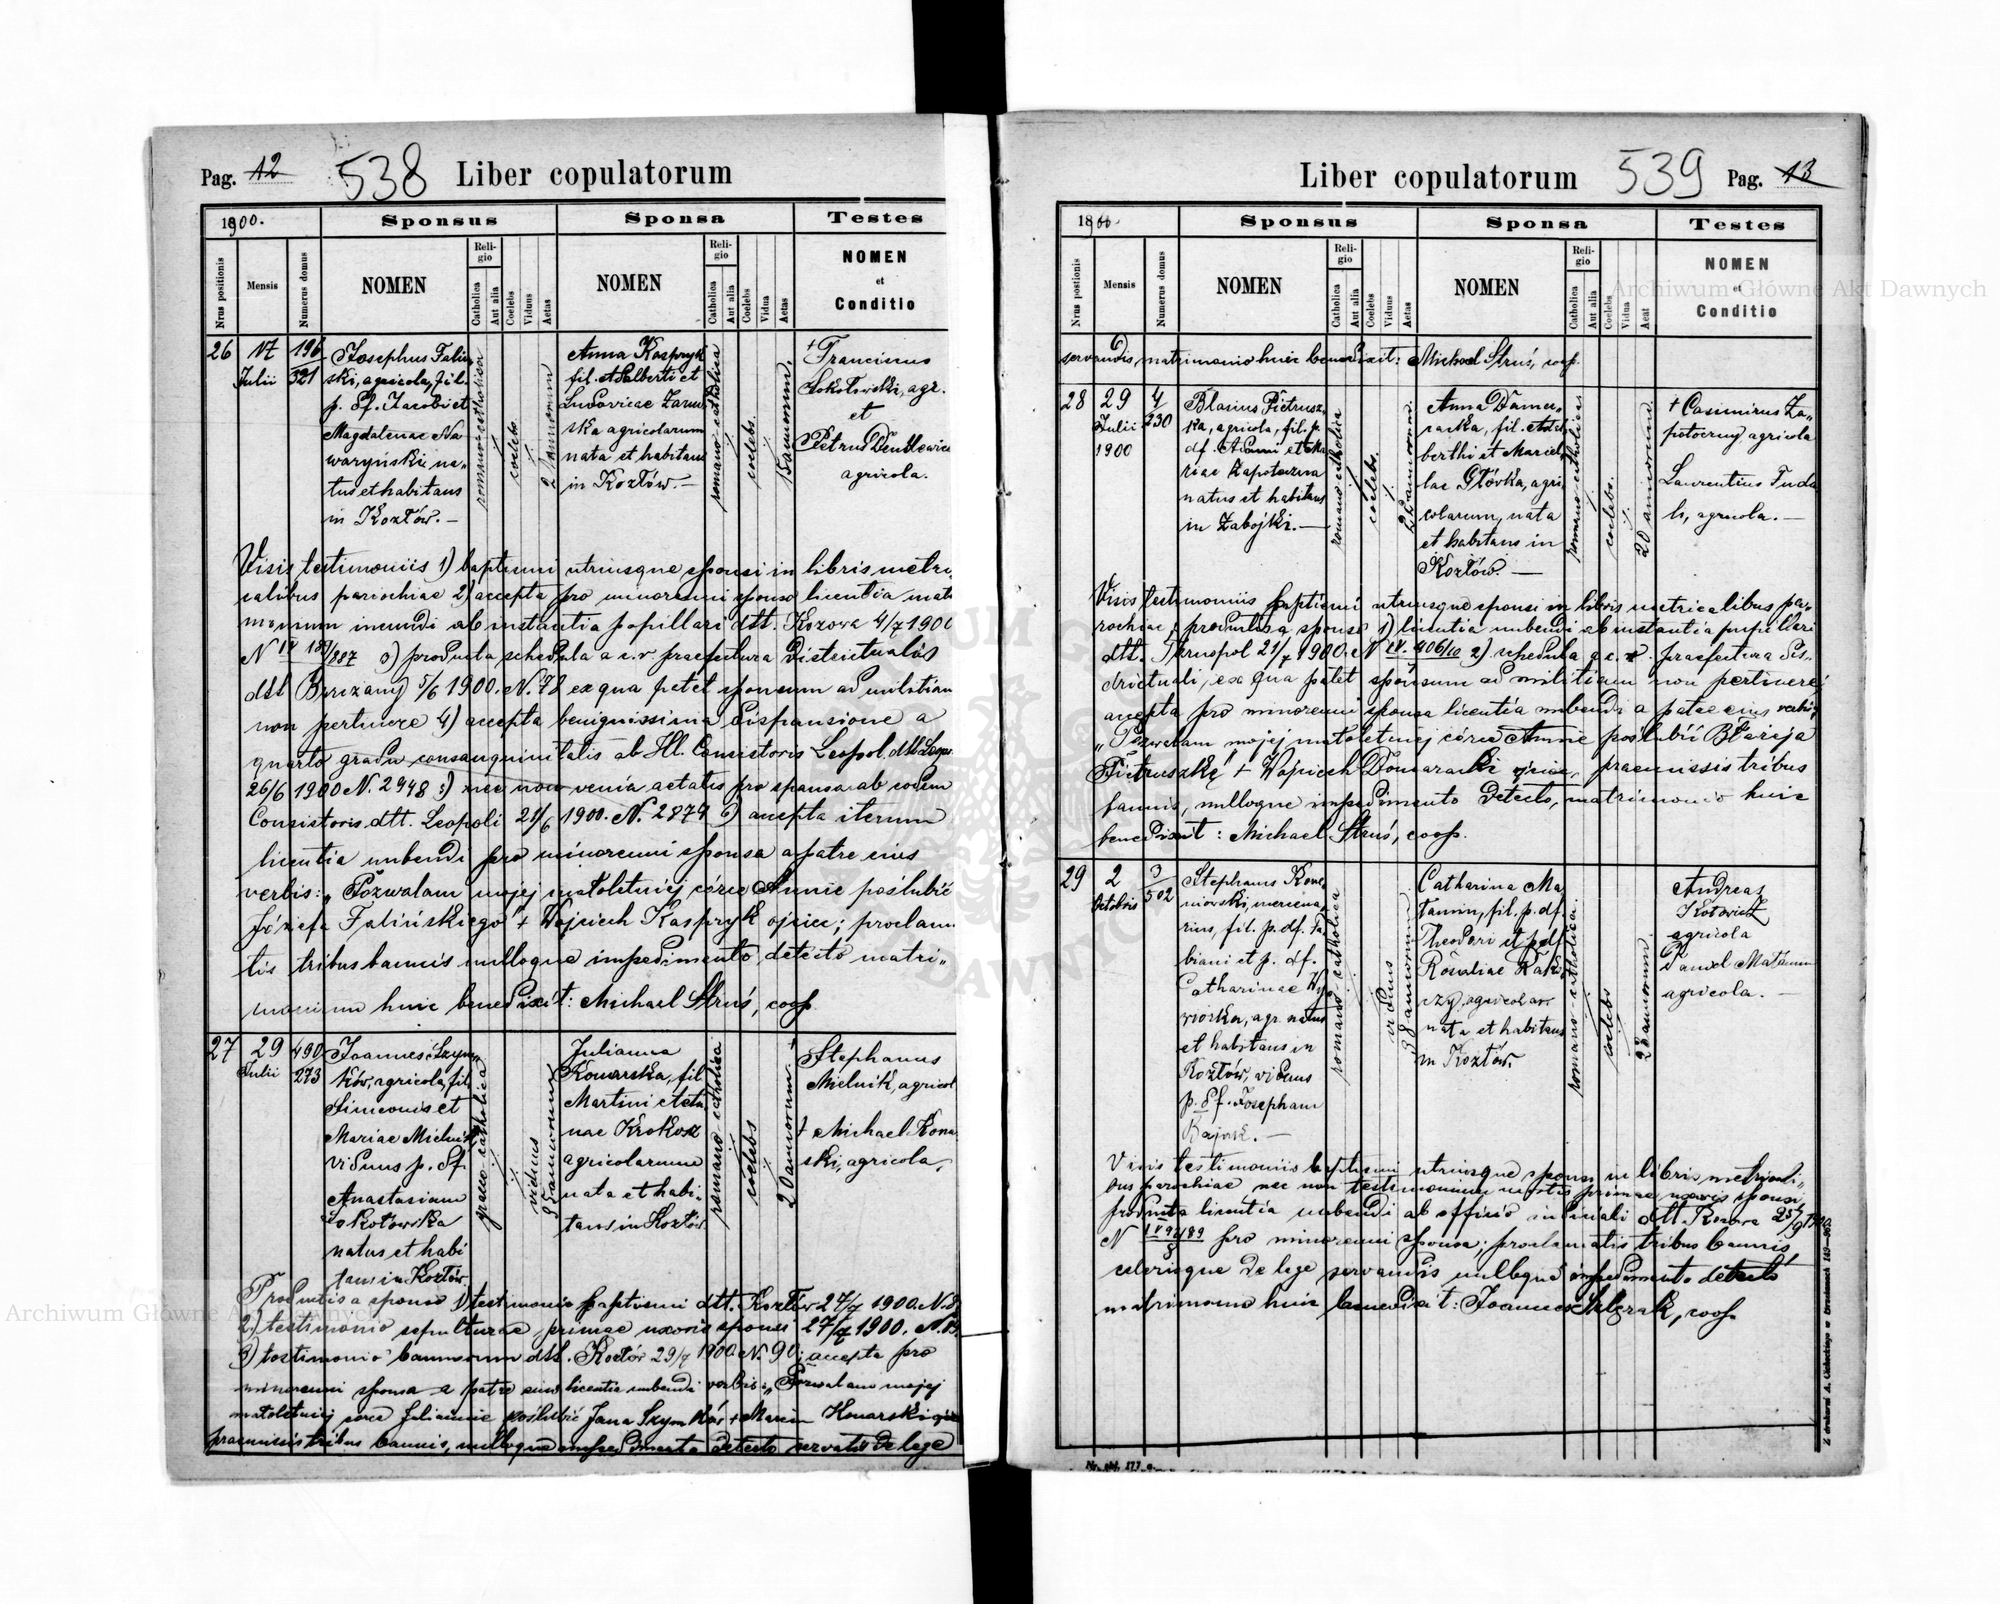 Pag. 12 538 Liber copulatorum
1900. Sponsus Sponsa Testes
Nrus positionis Mensis Numerus domus NOMEN Religio Catholica Aut alia Coelebs Viduus Aetas NOMEN Religio Catholica Aut alia Coelebs Vidua Aetas NOMEN et Conditio
26 17 Julii 196 321
Josephus Faliń
ski, agricola, fil.
p. df. Jacobi et
Magdalenae Na
waryński, na-
tus et habitans
in Kozłów. —
romano catholica
coelebs.
annorum
Anna Kaspryk
fil. Adalberti et
Ludovicae Zarw
ska agricolarum
nata et habitans
in Kozłów. —
romano catholica
coelebs.
18 annorum.
+ Franciscus
Sokołowski, agr.
et
Petrus Dentkewicz
agricola.
Visis testimoniis 1) baptismi utriusque sponsi in libris metri
calibus parochiae 2) accepta pro minorenni sponso licentia matri
monium ineundi ab instantia pupillari dtt. Kozowa 4/7 1900
N IV 189/887 3) producta schedula a c. r. praefectura districtualis
dtt Brzeżany 5/6 1900. N. 78 ex qua patet sponsum ad militiam
non pertinere 4) accepta benignissima dispensatione a
quarto gradu consanguinitatis ab Ill. Consistorio Leopol. dtt Leopol
26/6 1900 N. 2948 5) nec non venia aetatis pro sponsa ab eodem
Consistorio dtt. Leopoli 21/6 1900. N. 2879 6) accepta iterum
licentia nubendi pro minorenni sponsa a patre eius
verbis: „Pozwalam mojej małoletniej córce Annie poślubić
Józefa Falińskiego + Wojciech Kaspryk ojciec; proclama
tis tribus bannis nulloque impedimento detecto matri-
monium huic benedixit: Michael Struś, coop.
27 29 Julii 490 273
Joannes Szym
ków, agricola, fil
Simeonis et
Mariae Mielnik
viduus p. df
Anastasiam
Sokołowska
natus et habi
tans in Kozłów.
graeco catholica
viduus
annorum
Julianna
Konarska, fil
Martini et An
nae Krokosz
agricolarum
nata et habi-
tans in Kozłów
romano-catholica
coelebs
20 annorum.
Stephanus
Mielnik, agricol
+ Michael Kona
ski, agricola,
Productis a sponso 1) testimonio baptismi dtt. Kozłów 27/7 1900. N.
2) testimonio sepulturae primae uxoris sponsi 27/7 1900. N.
3) testimonio bannorum dtt. Kozłów 29/7 1900 N. 90; accepta pro
minorenni sponsa a patre eius licentia nubendi verbis: „Pozwalam mojej
małoletniej córce Juliannie poślubić Jana Szymków + Marcin Konarski ojciec
praemissis tribus bannis, nulloque impedimento detecto servatis de lege
Liber copulatorum 539 Pag. 13
1900. Sponsus Sponsa Testes
Nrus positionis Mensis Numerus domus NOMEN Religio Catholica Aut alia Coelebs Viduus Aetas NOMEN Religio Catholica Aut alia Coelebs Vidua Aeat NOMEN et Conditio
servandis, matrimonio huic benedixit: Michael Struś, coop.
28 29 Julii 1900 4 230
Blasius Pietrusz-
ka, agricola, fil. p.
df. Adami et Ma
riae Zapotoczna
natus et habitans
in Zabojki. —
romano catholica
coelebs.
annorum.
Anna Doma-
racka, fil. Adal
berthi et Marcel
lae Główka, agri
colarum, nata
et habitans in
Kozłów. —
romano catholica
coelebs.
20 annorum.
+ Casimirus Za-
potoczny agricola
Laurentius Fuda
li, agricola. —
Visis testimoniis baptismi utriusque sponsi in libris metricalibus pa-
rochiae; productis a sponso 1) licentia nubendi ab instantia pupillari
dtt. Tarnopol 21/7 1900. N IV. 906/10 2) schedula a c. r. praefectura dis-
drictuali, ex qua patet sponsum ad militiam non pertinere;
accepta pro minorenni sponsa licentia nubendi a patre eius verbis
„Pozwalam mojej małoletniej córce Annie poślubić Błażeja
Pietruszkę" + Wojciech Domaracki ojciec, praemissis tribus
bannis, nulloque impedimento detecto, matrimonio huic
benedixit: Michael Struś, coop.
29 2 Octobris 3 502
Stephanus Kone
niowski, mercena
rius, fil. p. df. Fa
biani et p. df.
Catharinae Wy
wiorka, agr. natus
et habitans in
Kozłów, viduus
p. df. Josepham
Bajrak. —
romano-catholica
viduus
38 annorum
Catharina Ma
tamin, fil. p. df.
Theodori et p. df
Rosaliae
agricolarum
nata et habitans
in Kozłów.
romano-catholica.
coelebs
23 annorum.
Andreas
Kotowicz
agricola
Daniel Matamin
agricola. —
Visis testimoniis baptismi utriusque sponsi in libris metricali-
bus parochiae nec non testimonium mortis primae uxoris sponsi,
producta licentia nubendi ab officio iudiciali dtt. Kozowa 25/9 1900
N IV 92/89 pro minorenni sponsa; proclamatis tribus bannis
ceterisque de lege servandis nulloque impedimento detecto
matrimonio huic benedixit: Joannes coop.
Z drukarni A. Cichockiego w Drohobyczu
Nr. skł. 177 a.
Archiwum Główne Akt Dawnych
Archiwum Główne Akt Dawnych